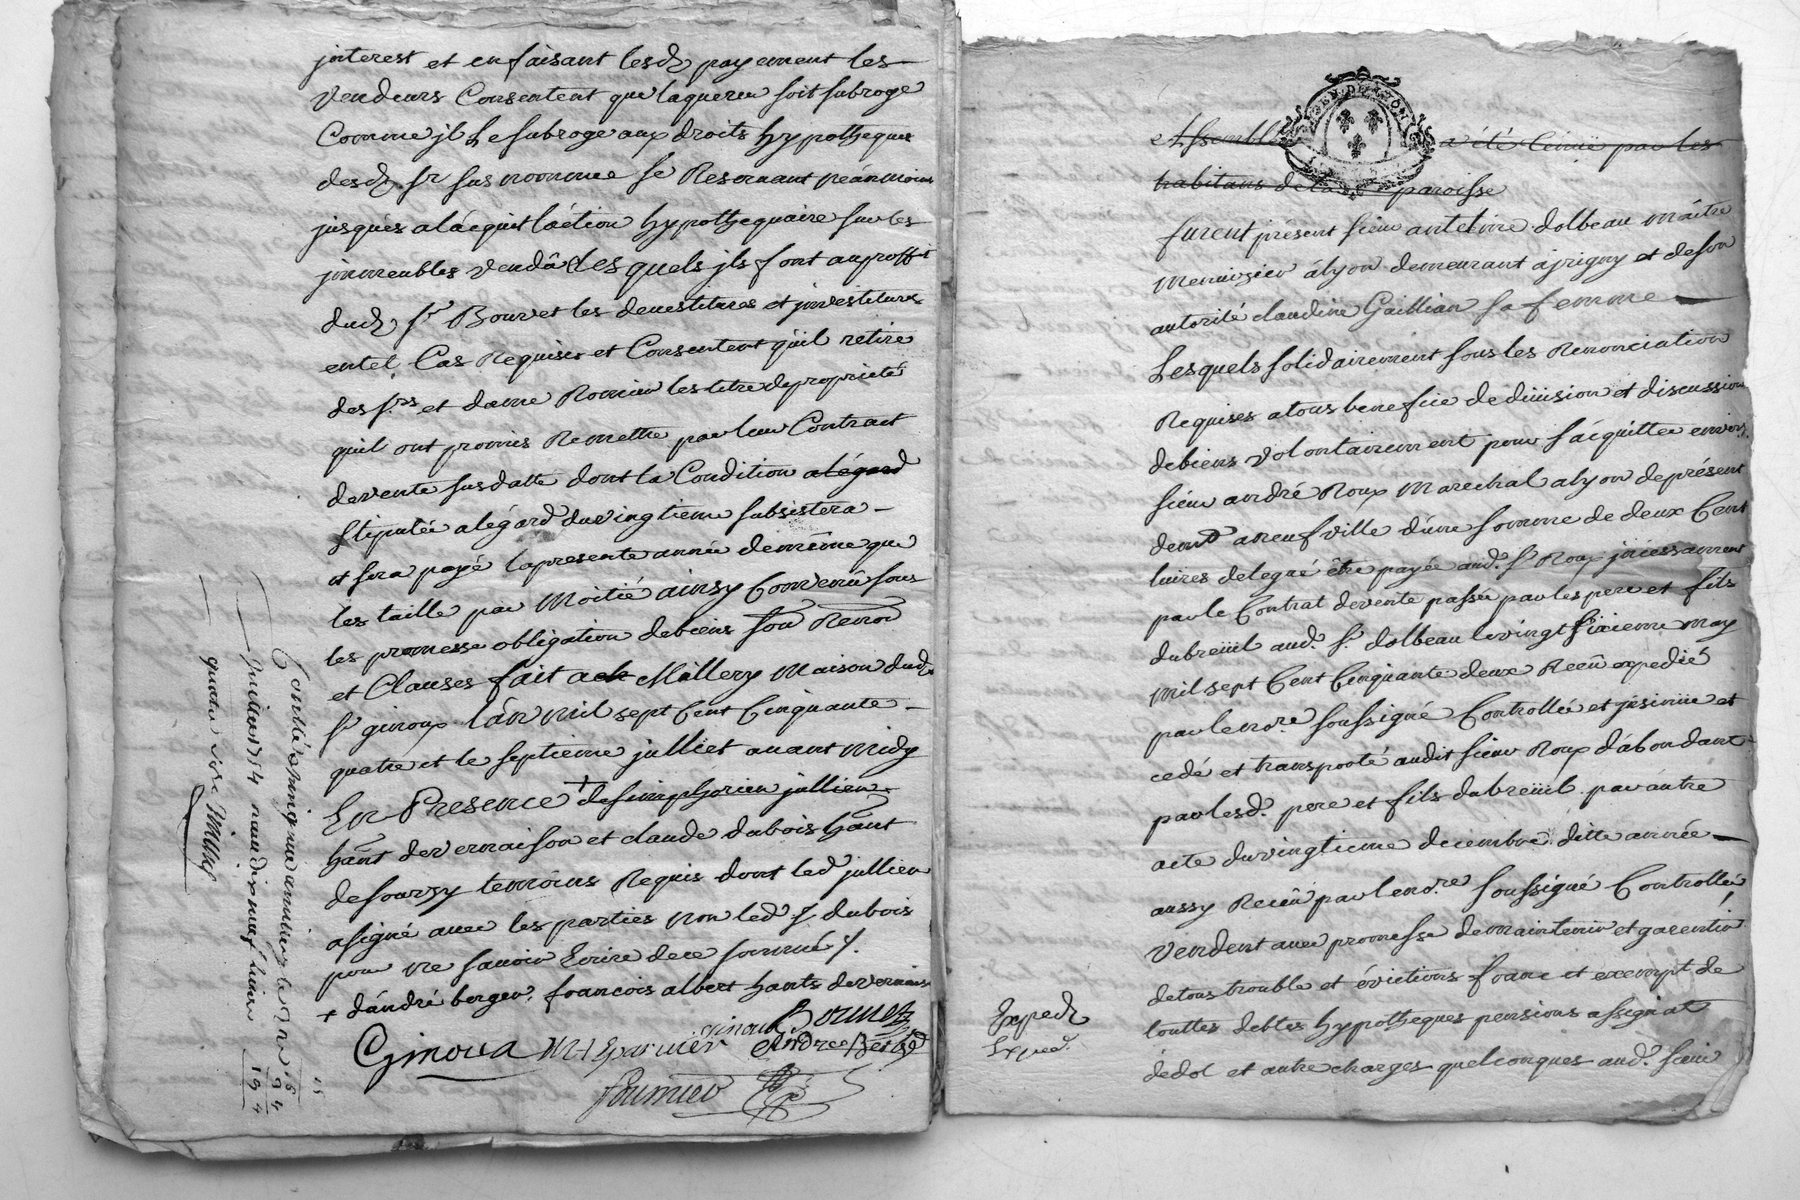 jnterest et en faisant lesd. payement les
Vendeurs Consentent que laquereu soit subroge
Comme jl Le subroge aux droits hypotheques
desd. Sr sus nommee se Reservant neánmoins
jusques a lácquit láction hypothequaire sur les
jmmeubles vendû desquels jls font au proffit
dud. Sr Bouvet les devestitures et jnvestitures
en tel Cas Requises et Consentent qúil retire
des Srs et dame Romieu les titre de proprieté
quil ont promis Remettre par leur Contract
de vente susdatte dont la Condition alégard
Stipulée alégard du vingtieme subsistera
et sera payé la presente année de même que
les taille par Moitié ainsy Convenû sous
les promesse obligation de biens sou Renon
et Clauses fait a Millery Maison dud.
Sr ginoux lán mil sept Cent Cinquante
quatre et le septieme julliet avant midy
En Presence + de simphorien jullien
hant de vernaison et claude dubois hant
de sourzy temoins Requis dont led jullien
a signé avec les parties non led. dubois
pour ne savoir Ecrire de ce sommé
+ dándré berger, francois albert hants de vernaison
ginoux Bouvet
Ginoux M + garnier Andre Berger
fournier
15
1694
194
et Assemblé a été tenüe par les
habitans de la parroisse
furent présent sieur antelme dolbeau Maître
Menuizier à lyon demeurant a jrigny et de son
autorité claudine Gaillian sa femme
Lesquels solidairement sous les Renonciation
Requises a tous benefice de division et discussion
de biens volontairement pour sácquitter envers
sieur andré Roux Marechal a lyon de présent
demt a neufville dúne somme de deux Cent
livres delegué être payée aud. Sr Roux jncessamment
par le Contrat de vente passé par les pere et fils
dubreüil aud. Sr. dolbeau le vingt sixieme may
mil sept Cent Cinquante deux Reçû expedié
par le nore. soussigné Controllée et jnsinüé et
cedé et transporté audit sieur Roux dábondant
par lesd. pere et fils dubreüil par autre
acte du vingtieme decembre ditte année
aussy Reçû par le nore soussigné Controllée
vendent avec promesse de maintenir et garentir
de tous trouble et évictions franc et exempt de
touttes debtes hypotheques pensions assignat
dédol et autre charges quelconques aud. sieur
Exped.